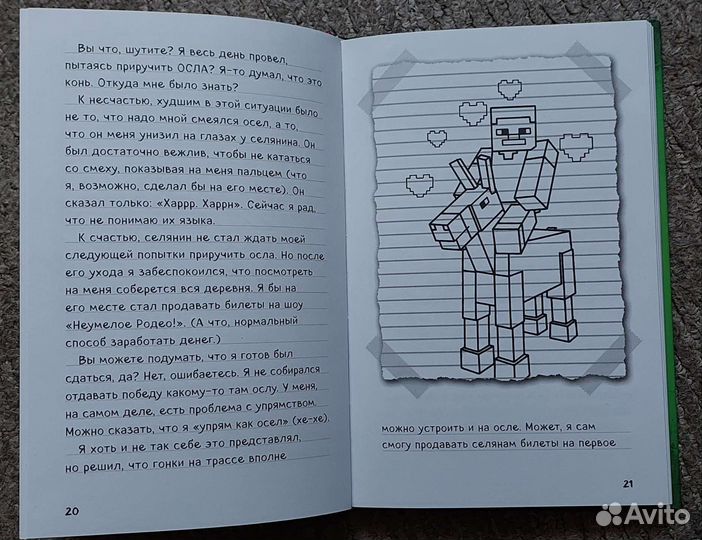 Вы что, шутите? Я весь день провел,
пытаясь приручить ОСЛА? Я-то думал, что это
конь. Откуда мне было знать?
К несчастью, худшим в этой ситуации было
не то, что надо мной смеялся осел, а то,
что он меня унизил на глазах у селянина. Он
был достаточно вежлив, чтобы не кататься
со смеху, показывая на меня пальцем (что
я, возможно, сделал бы на его месте). Он
сказал только: «Харрр. Харрн». Сейчас я рад,
что не понимаю их языка.
К счастью, селянин не стал ждать моей
следующей попытки приручить осла. Но после
его ухода я забеспокоился, что посмотреть
на меня соберется вся деревня. Я бы на
его месте стал продавать билеты на шоу
«Неумелое Родео!». (А что, нормальный
способ заработать денег.)
Вы можете подумать, что я готов был
сдаться, да? Нет, ошибаетесь. Я не собирался
отдавать победу какому-то там ослу. У меня,
на самом деле, есть проблема с упрямством.
Можно сказать, что я «упрям как осел» (хе-хе).
Я хоть и не так себе это представлял,
но решил, что гонки на трассе вполне
20
можно устроить и на осле. Может, я сам
смогу продавать селянам билеты на первое
21
Avito